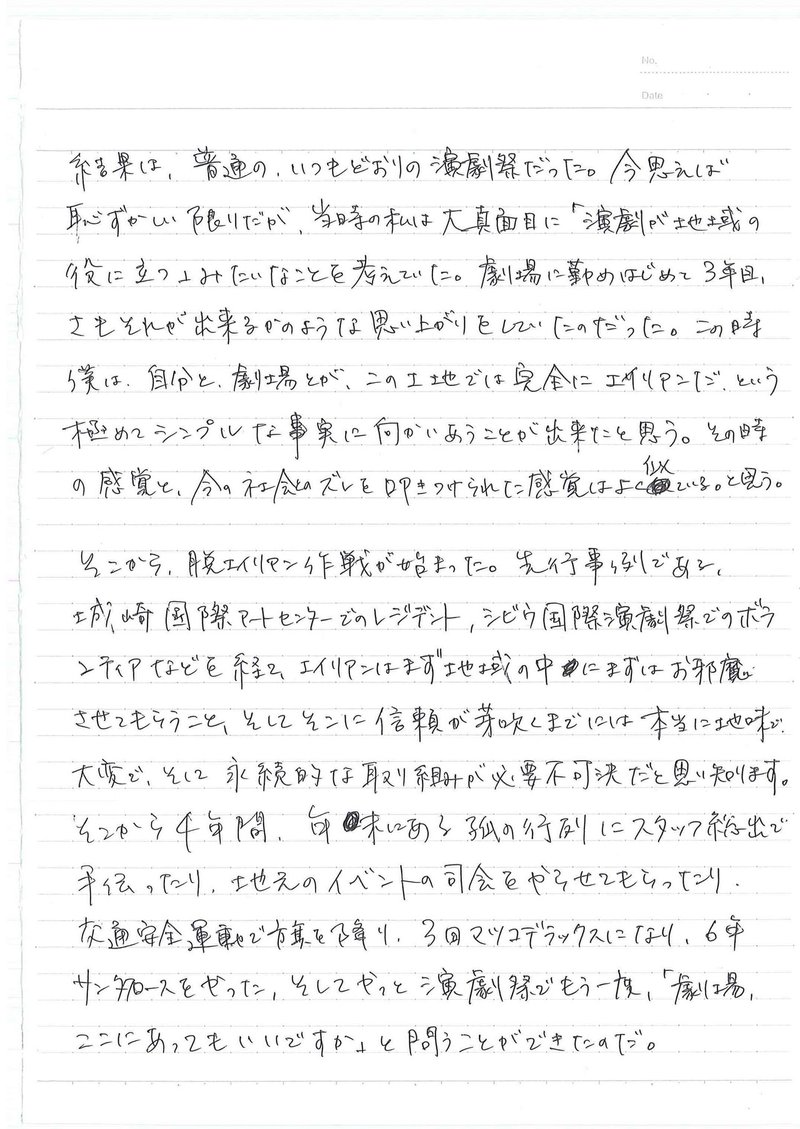 No.
Date
結果は、普通の、いつもどおりの演劇祭だった。今思えば
恥ずかしい限りだが、当時の私は大真面目に「演劇が地域の
役に立つ」みたいなことを考えていた。劇場に勤めはじめて3年目、
さもそれが出来るかのような思い上がりをしていたのだった。この時
僕は、自分と、劇場とが、この土地では完全にエイリアンだ、という
極めてシンプルな事実に向かいあうことが出来たと思う。その時
の感覚と、今の社会とのズレを叩きつけられた感覚はよく似ている。と思う。
そこから、脱エイリアン作戦が始まった。先行事例である、
城崎国際アートセンターでのレジデント、シビウ国際演劇祭でのボラ
ンティアなどを経て、エイリアンはまず地域の中にまずはお邪魔
させてもらうこと、そしてそこに信頼が芽吹くまでには本当に地味で
大変で、そして永続的な取り組みが必要不可決だと思い知ります。
そこから4年間、年末にある狐の行列にスタッフ総出で
手伝ったり、地元のイベントの司会をやらせてもらったり、
交通安全運動で旗を降り、3回マツコデラックスになり、6年
サンタクロースをやった、そしてやっと演劇祭でもう一度、「劇場、
ここにあってもいいですか」と問うことができたのだ。